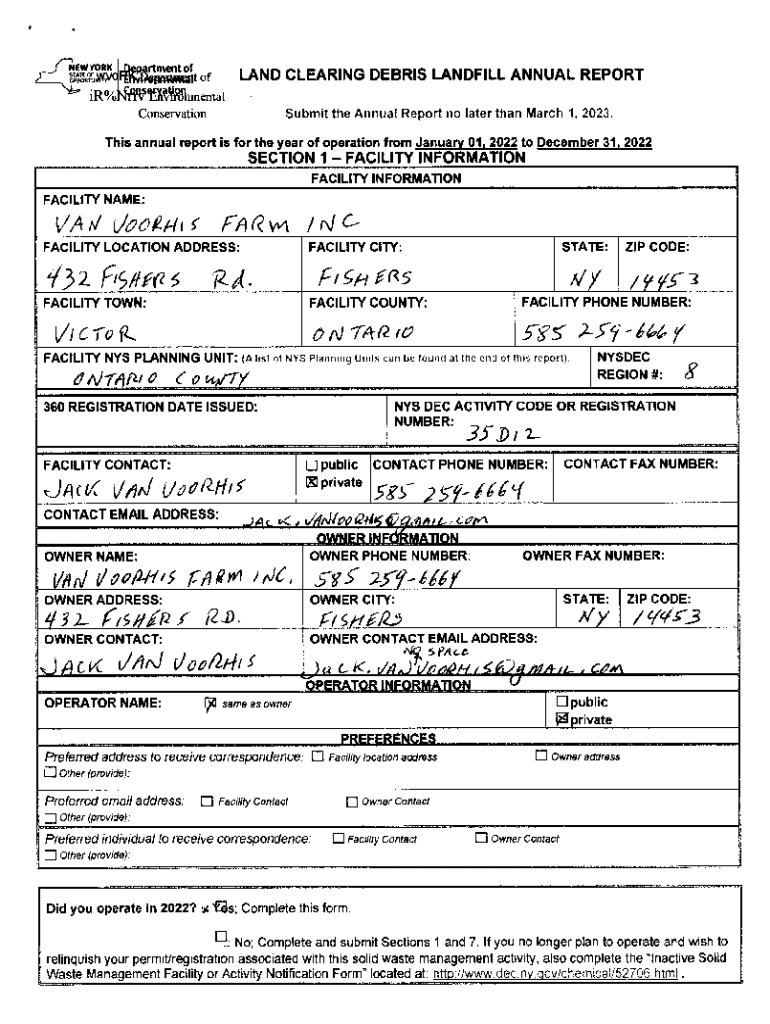 NEW YORK STATE OF OPPORTUNITY Department of Environmental Conservation
LAND CLEARING DEBRIS LANDFILL ANNUAL REPORT
Conservation
Submit the Annual Report no later than March 1, 2023.
This annual report is for the year of operation from January 01, 2022 to December 31, 2022
SECTION 1 – FACILITY INFORMATION
FACILITY INFORMATION
FACILITY NAME:
VAN VOORHIS FARM INC
FACILITY LOCATION ADDRESS: FACILITY CITY: STATE: ZIP CODE:
432 FISHERS Rd. FISHERS NY 14453
FACILITY TOWN: FACILITY COUNTY: FACILITY PHONE NUMBER:
VICTOR ONTARIO 585 259-6664
FACILITY NYS PLANNING UNIT: (A list of NYS Planning Units can be found at the end of this report). NYSDEC
ONTARIO COUNTY REGION #: 8
360 REGISTRATION DATE ISSUED: NYS DEC ACTIVITY CODE OR REGISTRATION
NUMBER: 35D12
FACILITY CONTACT: public CONTACT PHONE NUMBER: CONTACT FAX NUMBER:
JACK VAN VOORHIS private 585 259-6664
CONTACT EMAIL ADDRESS: JACK.VANVOORHIS6@gmail.com
OWNER INFORMATION
OWNER NAME: OWNER PHONE NUMBER: OWNER FAX NUMBER:
VAN VOORHIS FARM INC. 585 259-6664
OWNER ADDRESS: OWNER CITY: STATE: ZIP CODE:
432 FISHERS RD. FISHERS NY 14453
OWNER CONTACT: OWNER CONTACT EMAIL ADDRESS:
NO SPACE
JACK VAN VOORHIS JACK.VANVOORHIS6@gMAIL.COM
OPERATOR INFORMATION
OPERATOR NAME: same as owner public
private
PREFERENCES
Preferred address to receive correspondence: Facility location address Owner address
Other (provide):
Preferred email address: Facility Contact Owner Contact
Other (provide):
Preferred individual to receive correspondence: Facility Contact Owner Contact
Other (provide):
Did you operate in 2022? x Yes; Complete this form.
No; Complete and submit Sections 1 and 7. If you no longer plan to operate and wish to
relinquish your permit/registration associated with this solid waste management activity, also complete the "Inactive Solid
Waste Management Facility or Activity Notification Form" located at: http://www.dec.ny.gov/chemical/52706.html .